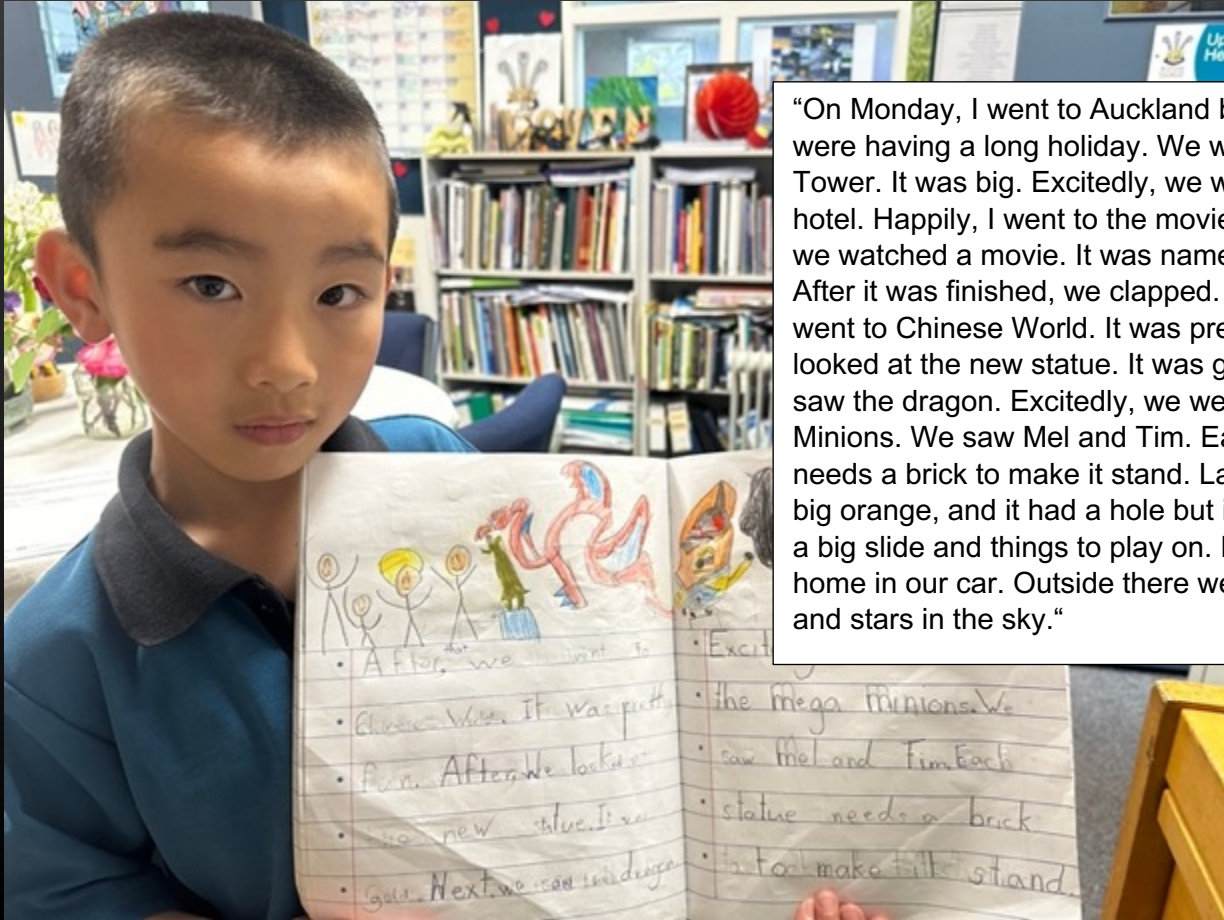 “On Monday, I went to Auckland b
were having a long holiday. We w
Tower. It was big. Excitedly, we w
hotel. Happily, I went to the movie
we watched a movie. It was name
After it was finished, we clapped.
went to Chinese World. It was pre
looked at the new statue. It was g
saw the dragon. Excitedly, we we
Minions. We saw Mel and Tim. Ea
needs a brick to make it stand. La
big orange, and it had a hole but i
a big slide and things to play on.
home in our car. Outside there we
and stars in the sky.“
After, that we went to
It was pretty
fun. After, We looked
new
Gold. Next, we saw the dragon
Excit
the Mega Minions. We
saw Mel and Tim. Each
statue needs a brick
to make stand.
Up
He